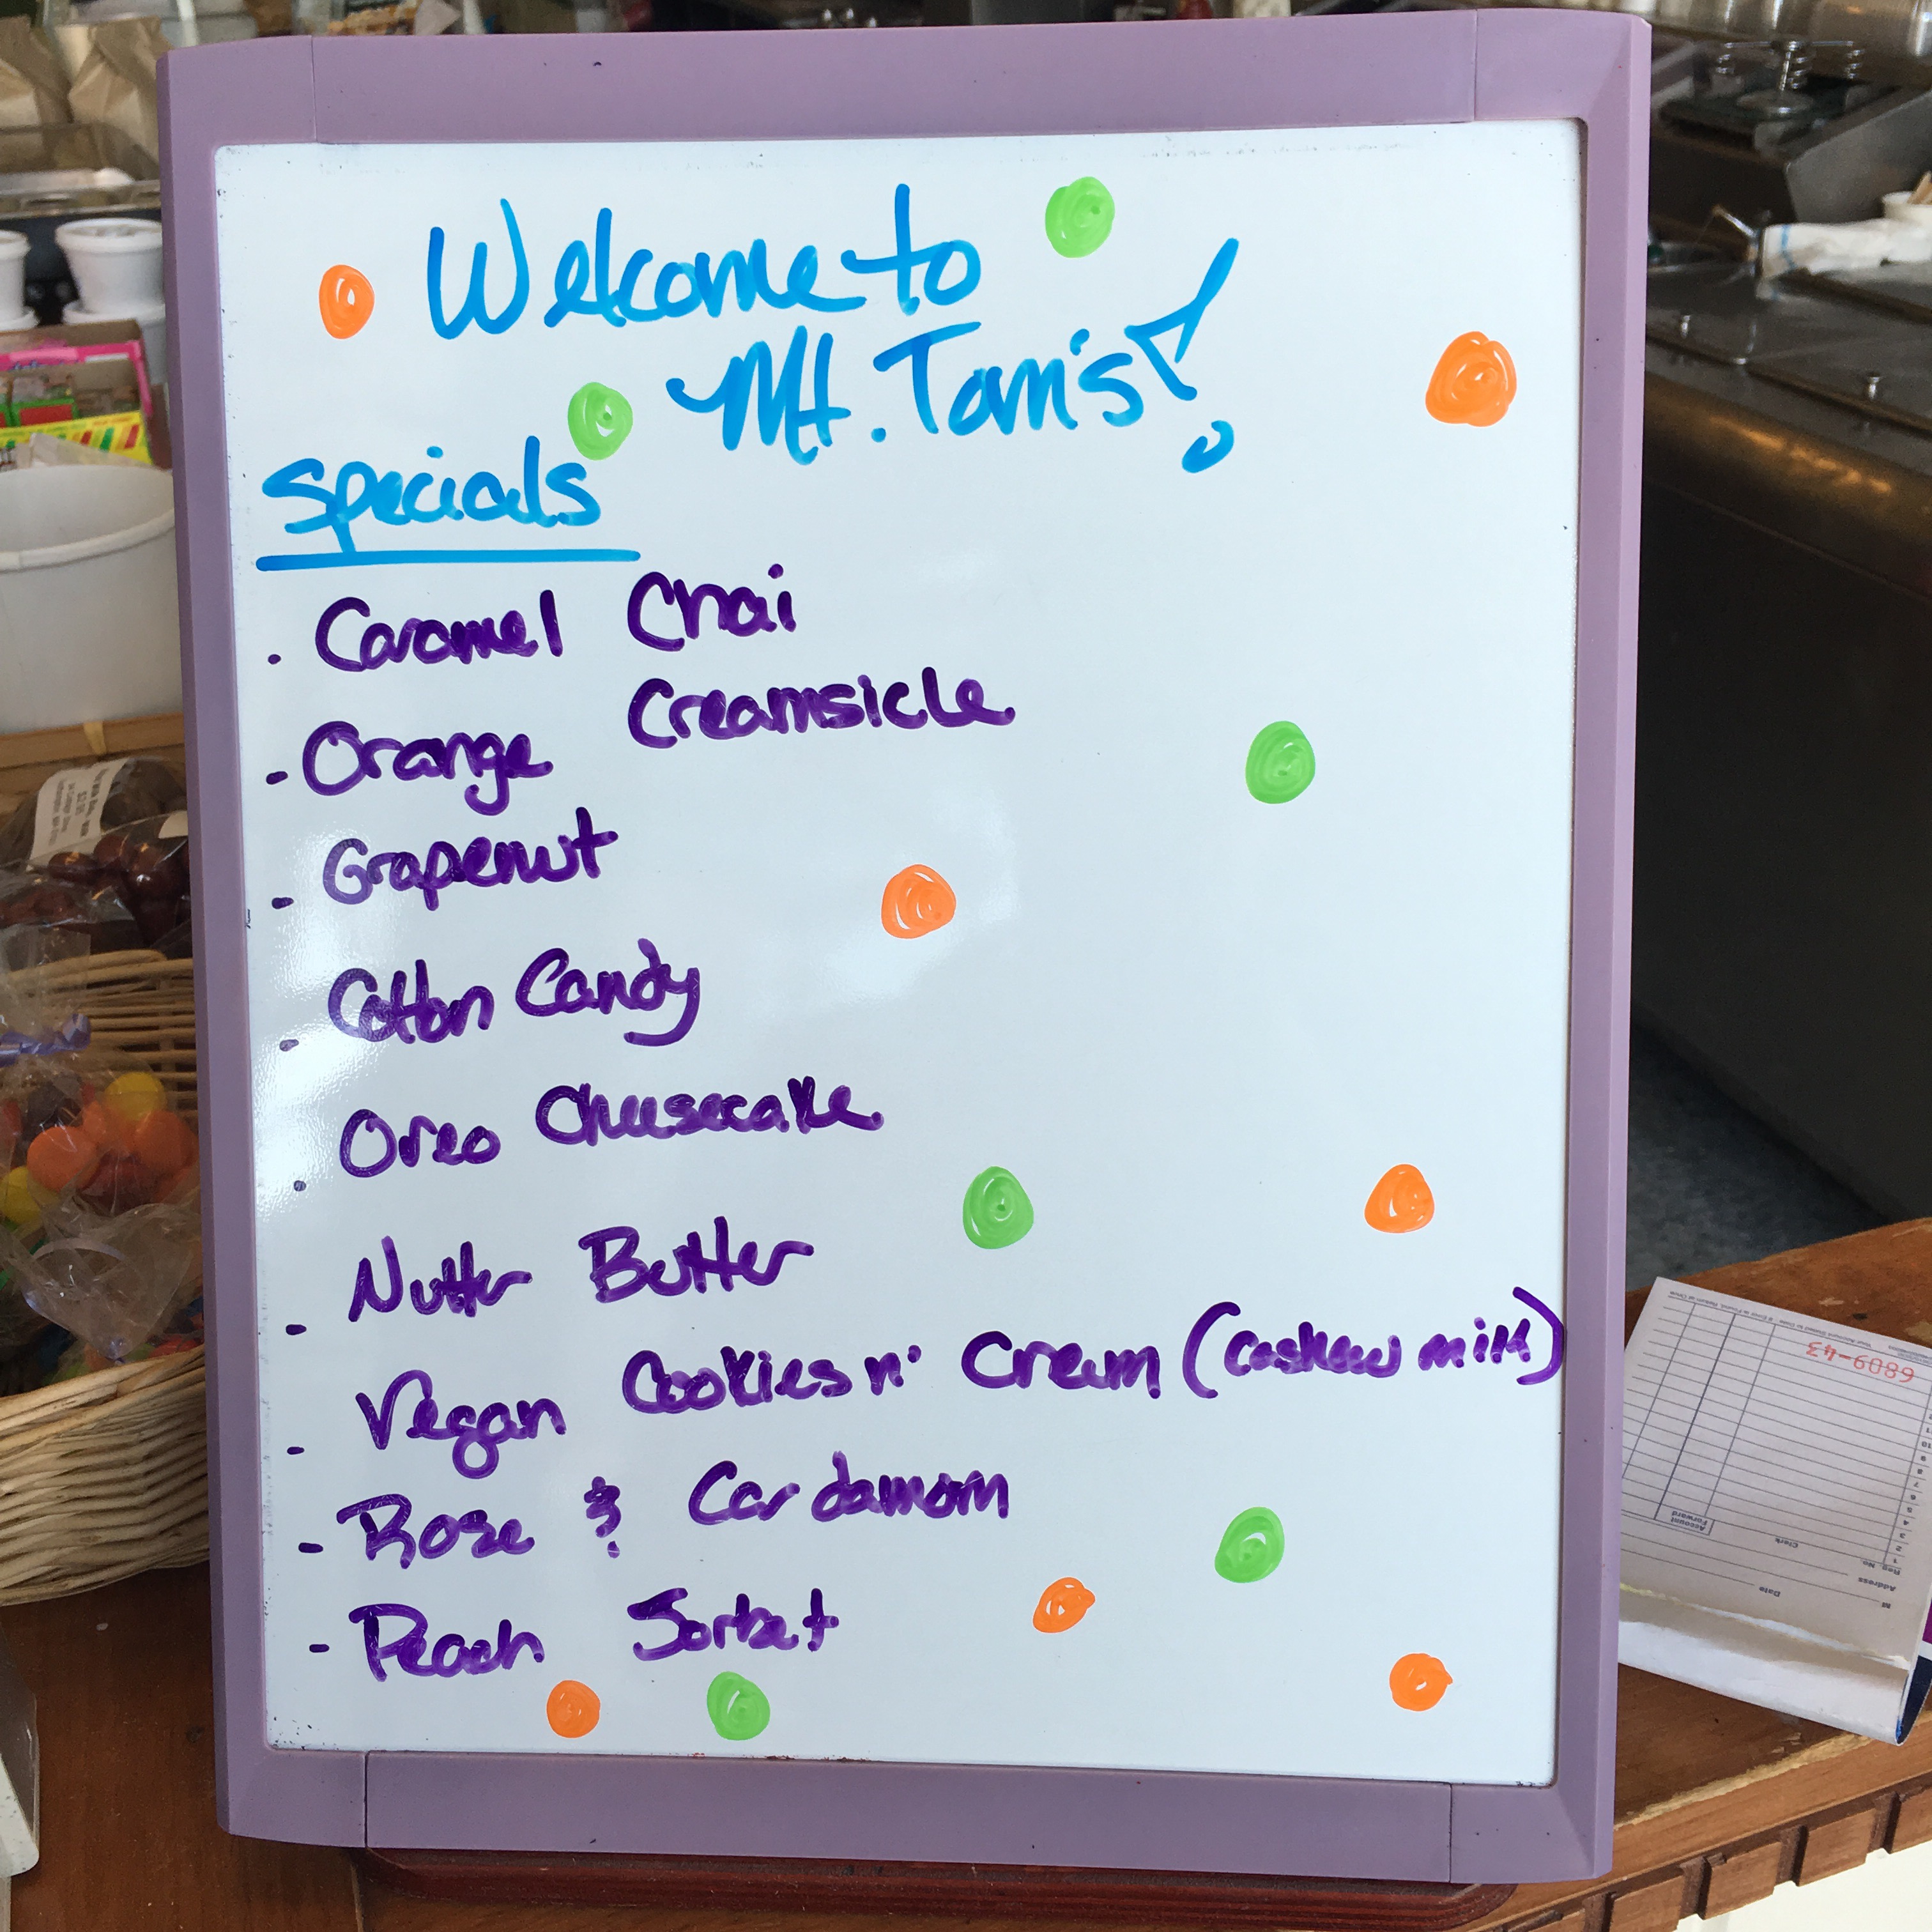 Welcome to
Mt. Tam's!
Specials
· Caramel Chai
- Orange Creamsicle
- Grapenut
- Cotton Candy
· Oreo Cheesecake
- Nutter Butter
- Vegan Cookies n' Cream (cashew milk)
- Rose & Cardamom
- Peach Sorbet
6809-43
Account
Forward
Clerk
Reg. No.
Address
Date
M